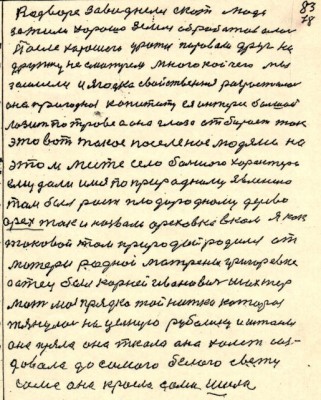 83
78
На дворе завиднели скот людь
зажили хорошо земли обрабатовали
После хорошего урожая пировали друг на
дружку не смотрели много кой чего мы
зашили и ягодка свойствення разросталась
она пригодна капитту ея интери большой
лазит по троpве она глаза отбирает так
это вот такое поселеное людями на
этом месте село большого характера
ему дали имя по природному явлению
там было росте плодородному дерево
орех так и назвали ореховка в ком я как
таковой там природой родили от
матери родной матрены григоревне
а отец был корней иванович шихтер
мать моя прядка той нитка которая
тянулась на целную рубашку и штани
она пряла она ткала она холст соз-
довала до самого белого свету
сама она кроела сама шила